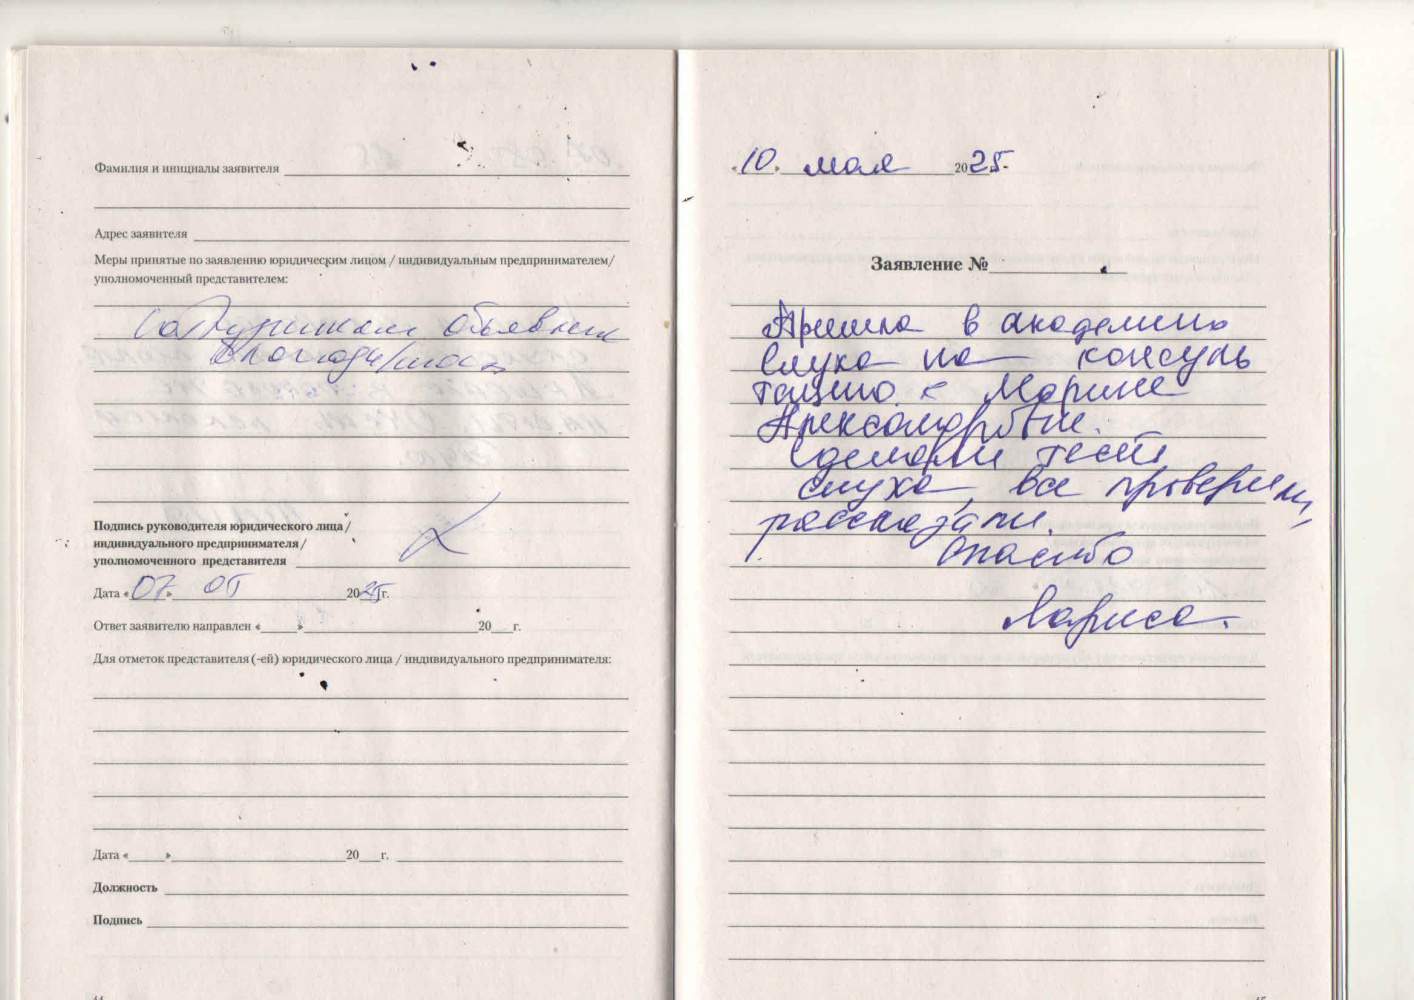 Фамилия и инициалы заявителя
Адрес заявителя
Меры принятые по заявлению юридическим лицом / индивидуальным предпринимателем/
уполномоченный представителем:
Сотрудникам объявлена
благодарность
Подпись руководителя юридического лица/
индивидуального предпринимателя/
уполномоченного представителя
Дата «07» 05 2025г.
Ответ заявителю направлен «____»____20__г.
Для отметок представителя (-ей) юридического лица / индивидуального предпринимателя:
Дата «____»____20__г.
Должность
Подпись
«10» мая 2025.
Заявление №
Пришла в академию
слуха на консуль
тацию к Марине
Александровне.
Сделали тест
слуха, все проверили,
рассказали.
Спасибо
Лариса.